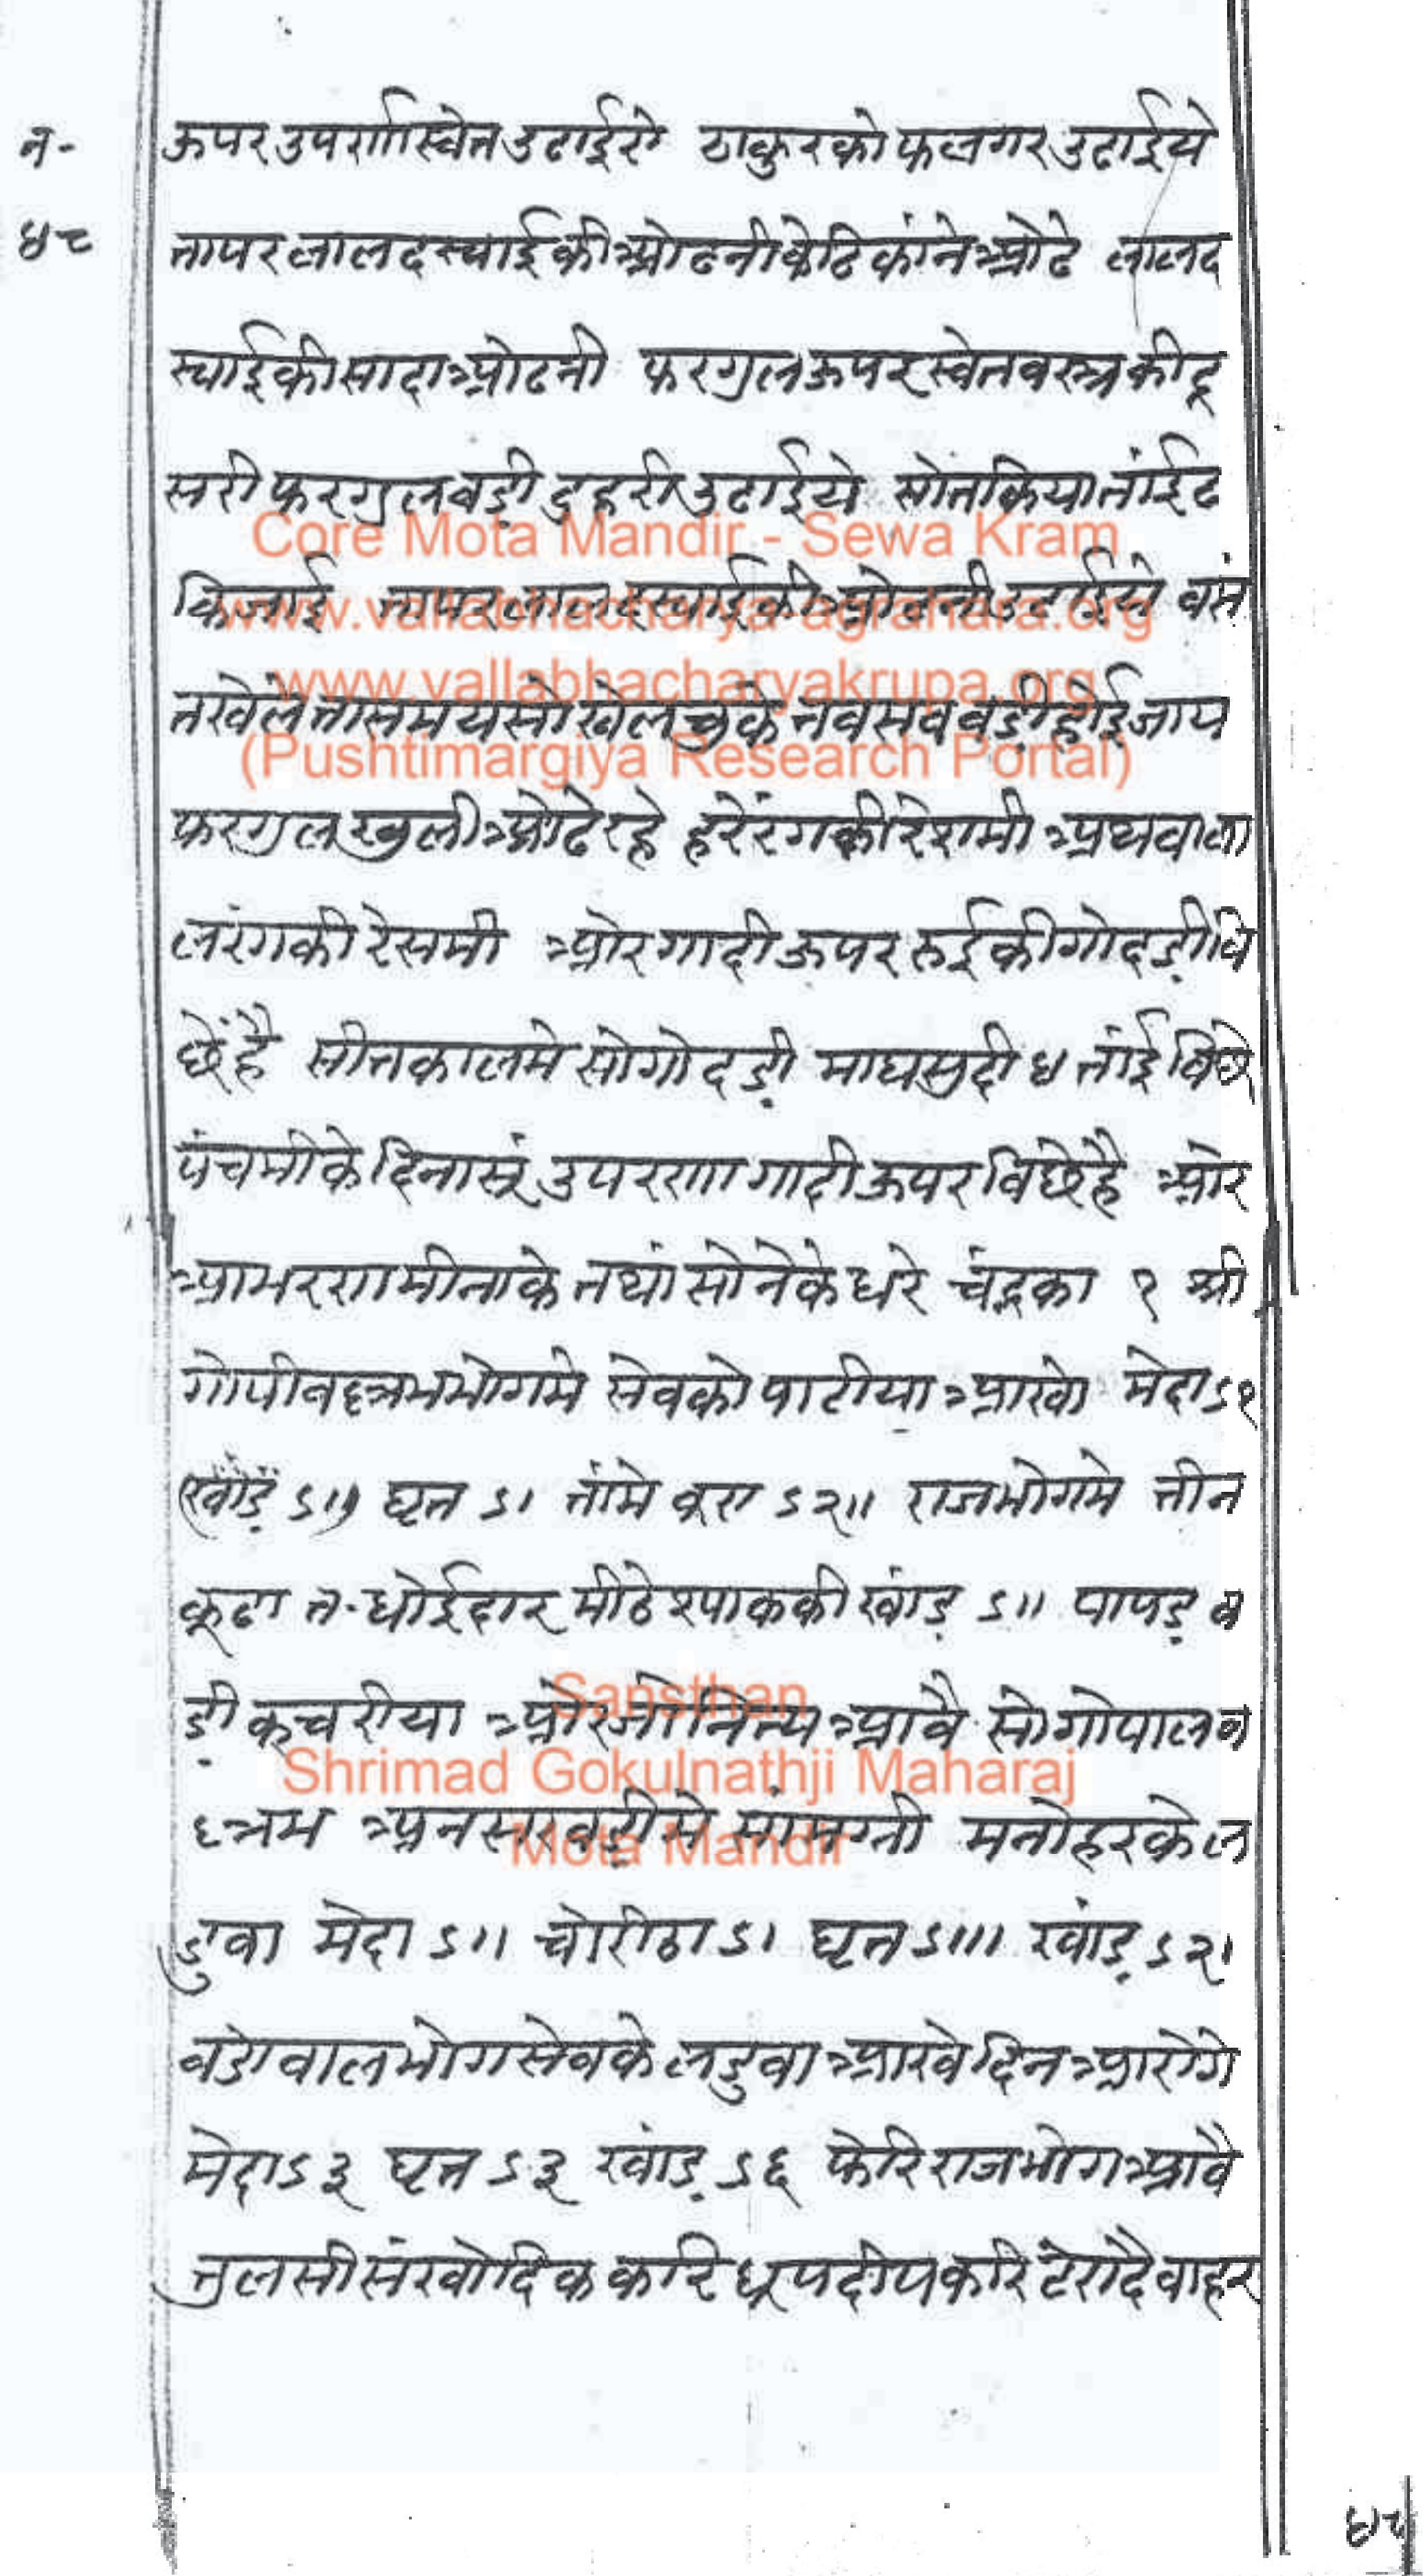 न-
४८
ऊपर उपरणा स्वेत उढाईये ठाकुरको फलगर उढाईये
तापर लाल दस्याई की ओढनी वेटिकांने ओढे लाल द
स्याई की सादा ओढनी फरगुल ऊपर स्वेत वस्त्र की दू
सरी फरगुल वड़ी दुहरी उढाईये सो तकिया तांई ढ
कि जाई तापर लाल दस्याई की ओढनी उढाईये वसं
त खेले ता समय सो खेल चुके तव सव वड़ी होई जाय
फरगुल खुली ओढे रहे हरे रंग की रेशमी अथवा ला
ल रंग की रेसमी ओर गादी ऊपर रुई की गोदड़ी वि
छें है सीतकाल मे सो गोदड़ी माघ सुदी ४ तांई विछे
पंचमी के दिना सूं उपरणा गादी ऊपर विछे है ओर
आभरण मीना के तथां सोने के धरे चंद्रका १ श्री
गोपीवल्लभ भोग मे सेव को पाटीया आखो मेदा ऽ१
(खांड़ ऽ॥) घृत ऽ। तांमे वूरा ऽ२॥ राजभोग मे तीन
कूढा त. धोईदार मीठे श्पाक की खांड़ ऽ॥ पापड़ व
ड़ी कचरीया ओर जो नित्य आवै सो गोपालव
ल्लभ अनसखड़ी मे सांमग्री मनोहर के ल
डुवा मेदा ऽ॥ चोरीठा ऽ। घृत ऽ॥। खांड़ ऽ२।
वडो वालभोग सेव के लडुवा आखे दिन आरोगे
मेदा ऽ३ घृत ऽ३ खांड़ ऽ६ फेरि राजभोग आवै
तुलसी संखोदिक करि धूप दीप करि टेरा दै वाहर
४८
Core Mota Mandir - Sewa Kram
www.vallabhacharya-agrahara.org
www.vallabhacharyakrupa.org
(Pushtimargiya Research Portal)
Sansthan
Shrimad Gokulnathji Maharaj
Mota Mandir